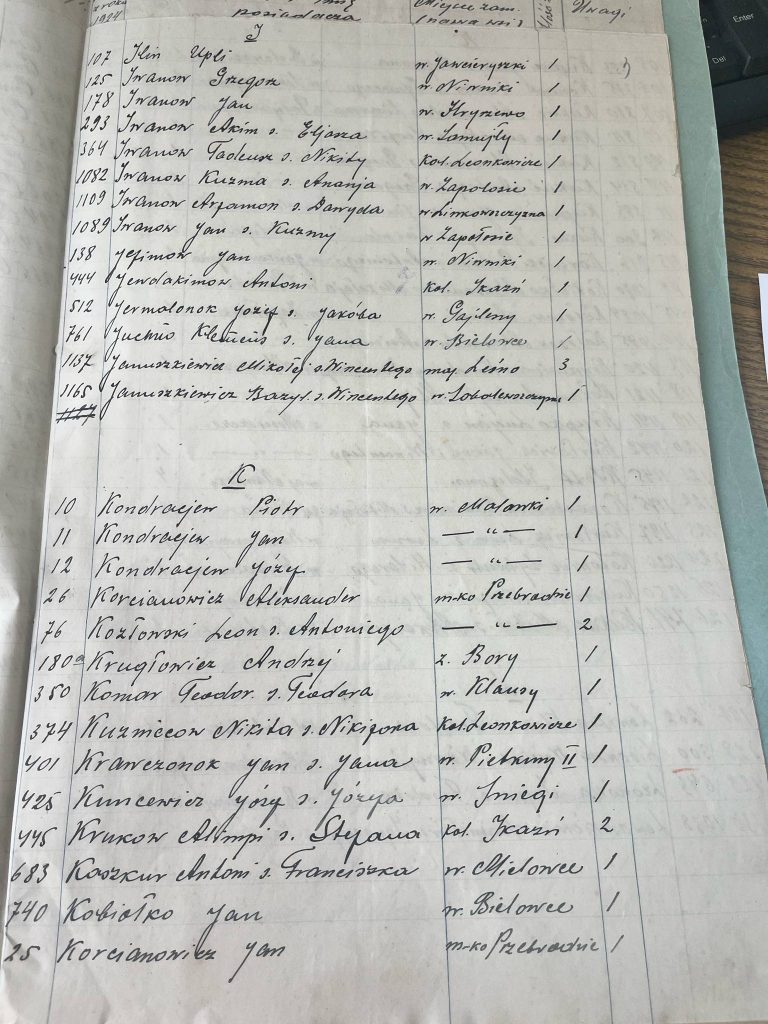 z roku 1924 posiadacza Miejsce zam. (nawa wsi) Ilość Uwagi
I
107 Ilin Upli w. Jawcieryszki 1
125 Iwanow Grzegorz w. Niwniki 1
178 Iwanow Jan w. Hryszewo 1
293 Iwanow Akim s. Eljasza w. Samujły 1
364 Iwanow Tadeusz s. Nikity kol. Leonkowicze 1
1082 Iwanow Kuzma s. Ananja w. Zapołosie 1
1109 Iwanow Arfamon s. Dawyda w. Linkowszczyzna 1
1089 Iwanow Jan s. Kuzmy w Zapołosie 1
138 Jefimow Jan w. Niwniki 1
444 Jewdakimow Antoni kol. Ikaźń 1
512 Jermolonok Józef s. Jakóba w. Gajleny 1
761 Juchno Klemens s. Jana w. Bielowce 1
1137 Januszkiewicz Mikołej s. Wincentego maj. Leśno 3
1165 Januszkiewicz Bazyl. s. Wincentego w. Sobolewszczyzna 1
K
10 Kondracjew Piotr w. Malawki 1
11 Kondracjew Jan — " — 1
12 Kondracjew Józef — " — 1
26 Korcianowicz Aleksander m-ko Przebrodzie 1
76 Kozłowski Leon s. Antoniego — " — 2
180a Krugłowicz Andrzej z. Bory 1
350 Komar Teodor. s. Teodora w. Klausy 1
374 Kuzniecow Nikita s. Nikifona kol. Leonkowicze 1
401 Krawczonok Jan s. Jana w. Pietkuny II 1
425 Kuncewicz Józef s. Józefa w. Śniegi 1
445 Krukow Alimpi s. Stefana kol. Ikaźń 2
683 Kaszkur Antoni s. Franciszka w. Mielowce 1
740 Kobiołko Jan w. Bielowce 1
25 Korcianowicz Jan m-ko Przebrodzie 1